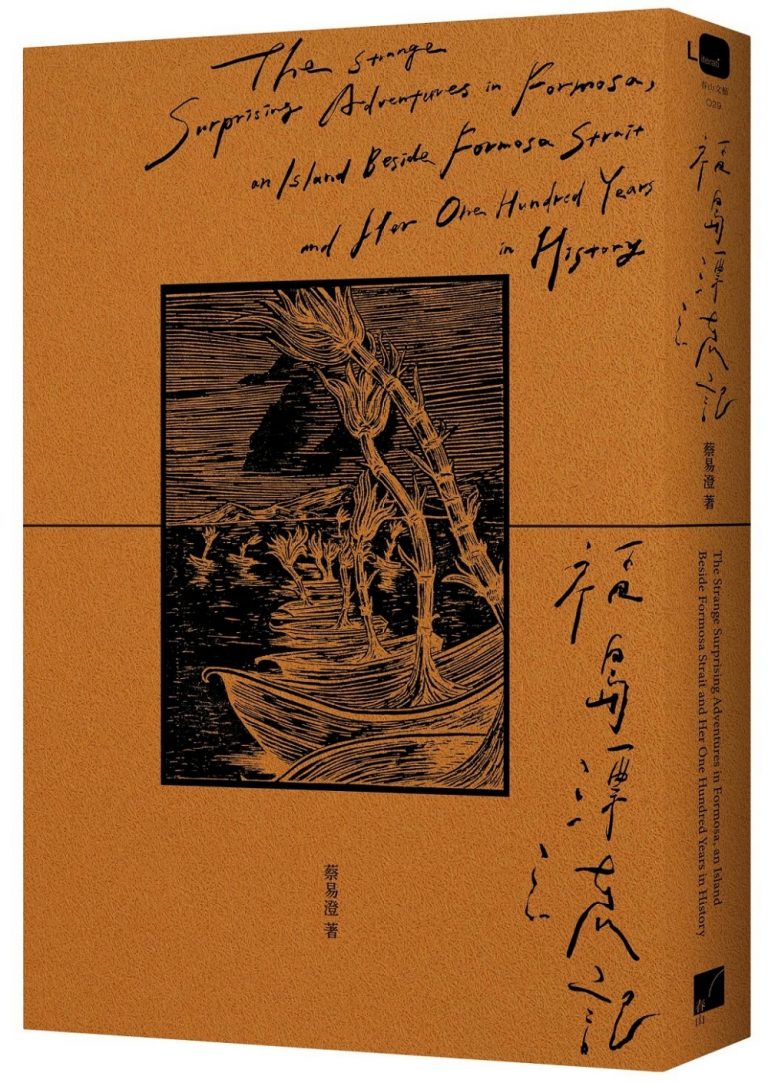 The Strange
Surprising Adventures in Formosa,
an Island Beside Formosa Strait
and Her One Hundred Years
in History
福島漂流記
蔡易澄 著
Literati
春山文藝
029
福島漂流記
蔡易澄 著
The Strange Surprising Adventures in Formosa, an Island
Beside Formosa Strait and Her One Hundred Years in History
春山